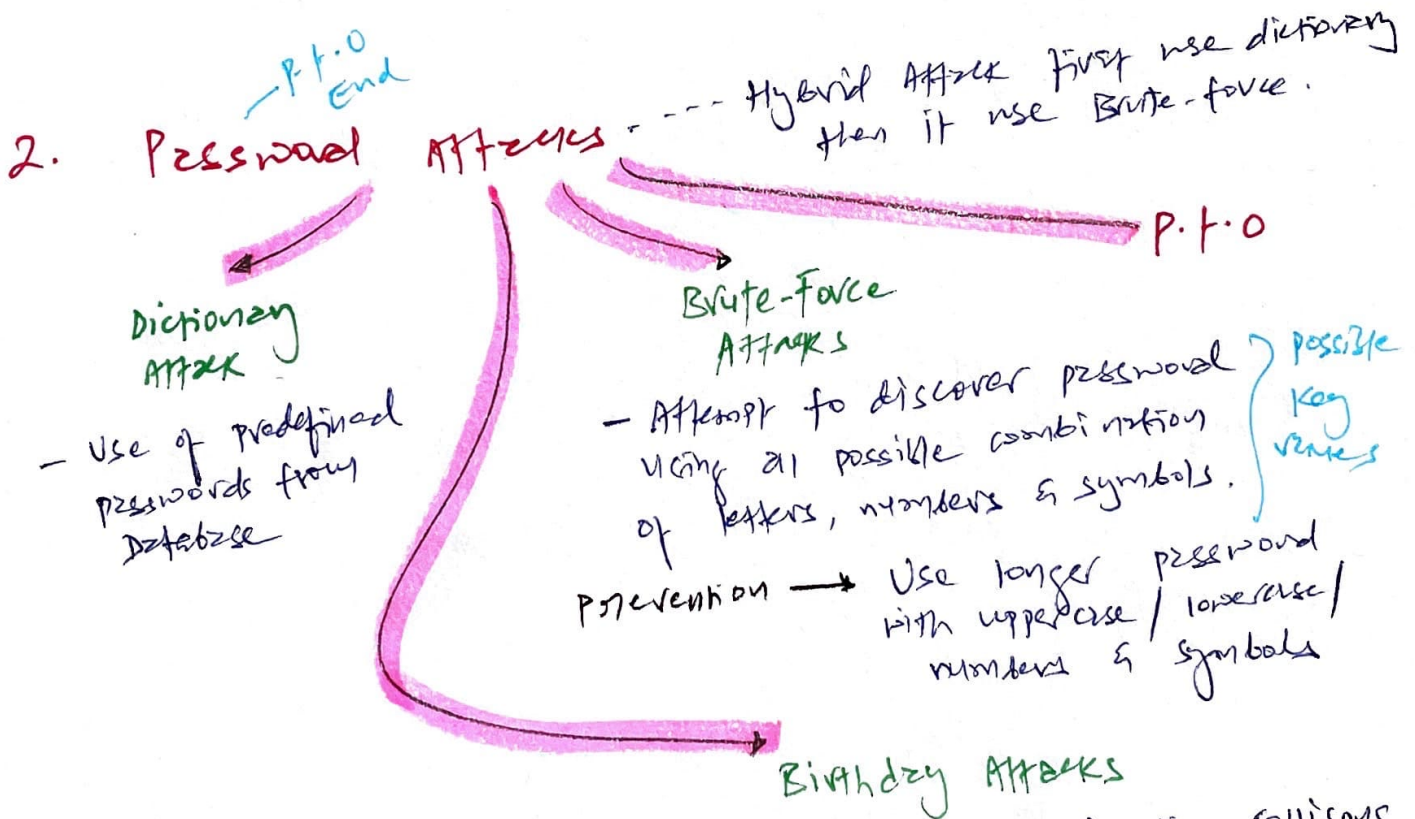 P.t.O
End
---- Hybrid Attack first use dictionary
then it use Brute-force.
2. Password Attacks
P.t.O
Dictionary
Attack
- Use of predefined
passwords from
Database
Brute-Force
Attacks
- Attempt to discover password
using all possible combination
of letters, numbers & symbols.
possible
Key
values
Prevention → Use longer password
with uppercase / lowercase /
numbers & symbols
Birthday Attacks